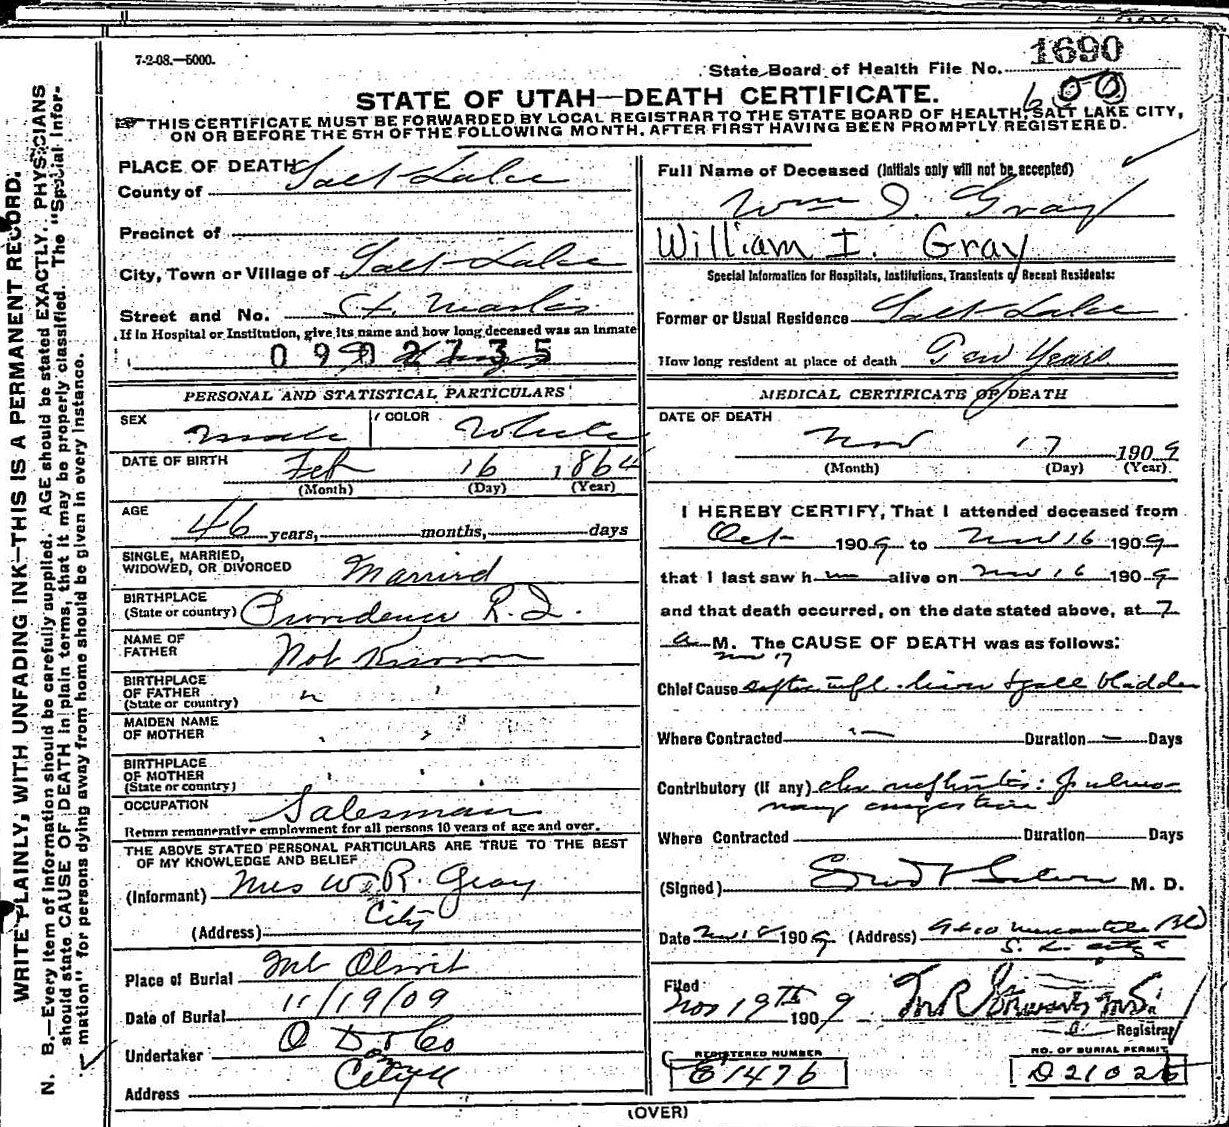 7-2-08.—5000.
State Board of Health File No. 1690
600
STATE OF UTAH—DEATH CERTIFICATE.
THIS CERTIFICATE MUST BE FORWARDED BY LOCAL REGISTRAR TO THE STATE BOARD OF HEALTH, SALT LAKE CITY,
ON OR BEFORE THE 5TH OF THE FOLLOWING MONTH, AFTER FIRST HAVING BEEN PROMPTLY REGISTERED.
WRITE PLAINLY, WITH UNFADING INK—THIS IS A PERMANENT RECORD.
N. B.—Every item of Information should be carefully supplied. AGE should be stated EXACTLY. PHYSICIANS
should state CAUSE OF DEATH in plain terms, that it may be properly classified. The "Special Infor-
mation" for persons dying away from home should be given in every instance.
PLACE OF DEATH
County of Salt Lake
Precinct of
City, Town or Village of Salt Lake
Street and No. St. Marks
If in Hospital or Institution, give its name and how long deceased was an inmate
0902735
PERSONAL AND STATISTICAL PARTICULARS
SEX Male COLOR White
DATE OF BIRTH Feb 16 1864
(Month) (Day) (Year)
AGE 46 years, months, days
SINGLE, MARRIED,
WIDOWED, OR DIVORCED Married
BIRTHPLACE
(State or country) Providence R.I.
NAME OF
FATHER Not Known
BIRTHPLACE
OF FATHER
(State or country) "
MAIDEN NAME
OF MOTHER
BIRTHPLACE
OF MOTHER
(State or country)
OCCUPATION Salesman
Return remunerative employment for all persons 10 years of age and over.
THE ABOVE STATED PERSONAL PARTICULARS ARE TRUE TO THE BEST
OF MY KNOWLEDGE AND BELIEF
(Informant) Mrs W. R. Gray
(Address) City
Place of Burial Mt Olivet
Date of Burial 11/19/09
Undertaker O D & Co
Address City
Full Name of Deceased (Initials only will not be accepted)
Wm I. Gray
William I. Gray
Special Information for Hospitals, Institutions, Transients or Recent Residents:
Former or Usual Residence Salt Lake
How long resident at place of death Few Years
MEDICAL CERTIFICATE OF DEATH
DATE OF DEATH
Nov 17 1909
(Month) (Day) (Year)
I HEREBY CERTIFY, That I attended deceased from
Oct 1909 to Nov 16 1909
that I last saw h m alive on Nov 16 1909
and that death occurred, on the date stated above, at 7
a M. The CAUSE OF DEATH was as follows:
Nov 17
Chief Cause septic infl. liver & gall bladder
Where Contracted — Duration — Days
Contributory (if any) chr nephritis: Pulmo-
nary congestion
Where Contracted Duration Days
(Signed) M. D.
Date Nov 18 1909 (Address) Mercantile Bld
S. L. City
Filed
Nov 19TH 1909
Registrar
REGISTERED NUMBER
E1476
NO. OF BURIAL PERMIT
(OVER)